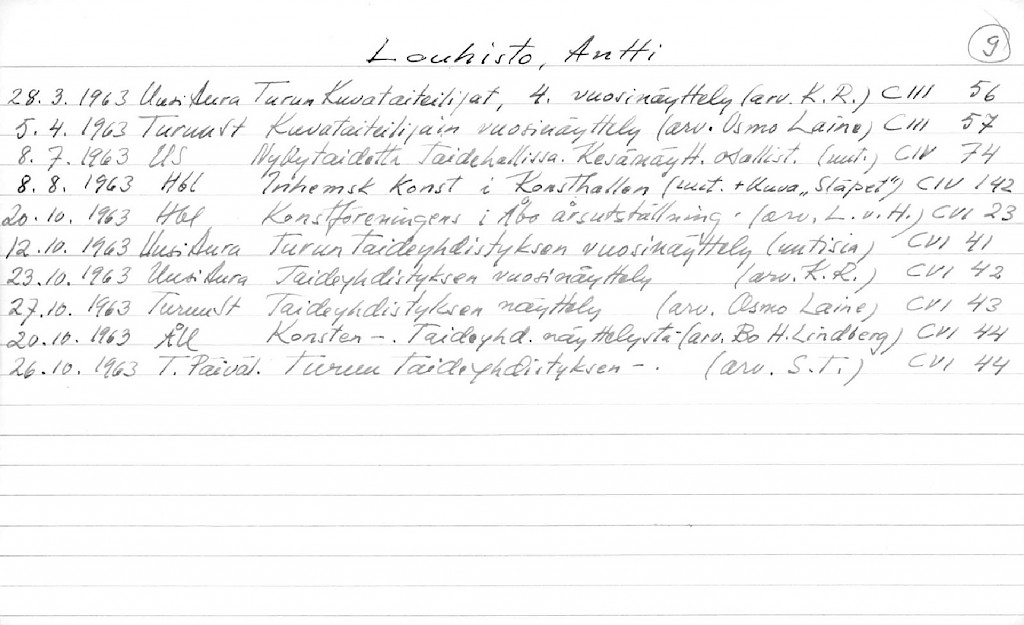 9
Louhisto, Antti
28.3.1963 Uusi Aura Turun Kuvataiteilijat, 4. vuosinäyttely (arv. K.R.) CIII 56
5.4.1963 TurunSt Kuvataiteilijain vuosinäyttely (arv. Osmo Laine) CIII 57
8.7.1963 US Nykytaidetta Taidehallissa. Kesänäytt. osallist. (uut.) CIV 74
8.8.1963 Hbl Inhemsk konst i Konsthallen (uut. + kuva „Släpet") CIV 142
20.10.1963 Hbl Konstföreningens i Åbo årsutställning. (arv. L.v.H.) CVI 23
12.10.1963 Uusi Aura Turun Taideyhdistyksen vuosinäyttely (uutisia) CVI 41
23.10.1963 Uusi Aura Taideyhdistyksen vuosinäyttely (arv. K.R.) CVI 42
27.10.1963 TurunSt Taideyhdistyksen näyttely (arv. Osmo Laine) CVI 43
20.10.1963 ÅU Konsten -. Taideyhd. näyttelystä (arv. Bo H. Lindberg) CVI 44
26.10.1963 T. Päiväl. Turun Taideyhdistyksen -. (arv. S.T.) CVI 44